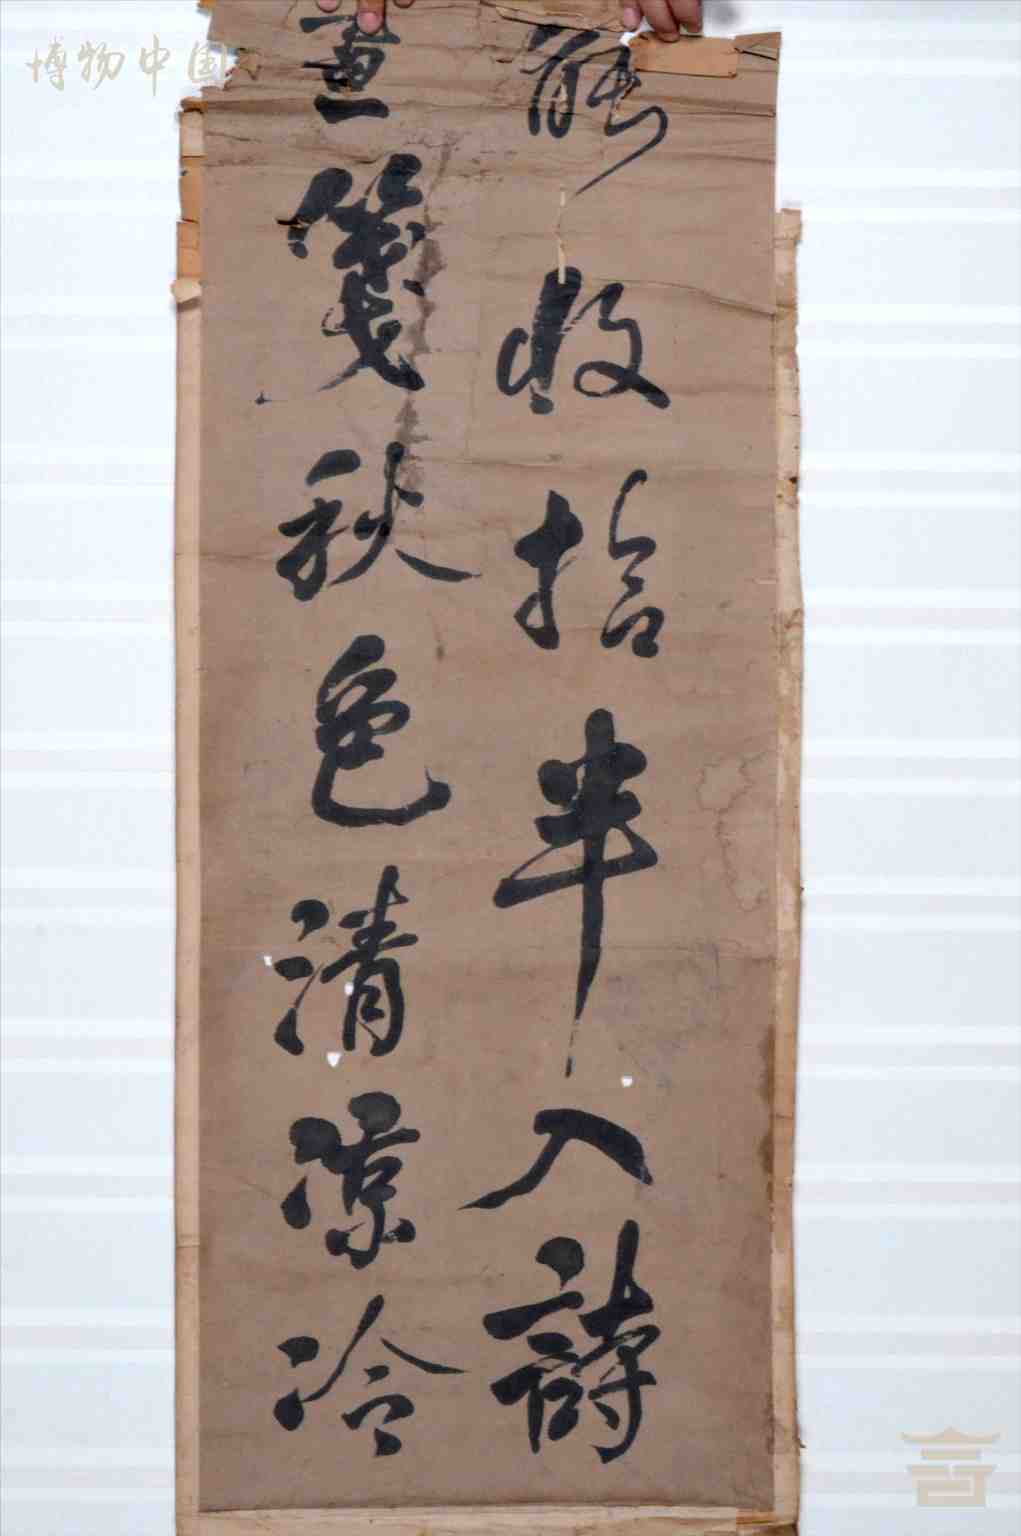 博物中国
能收拾半入詩
畫箋秋色清凉冷